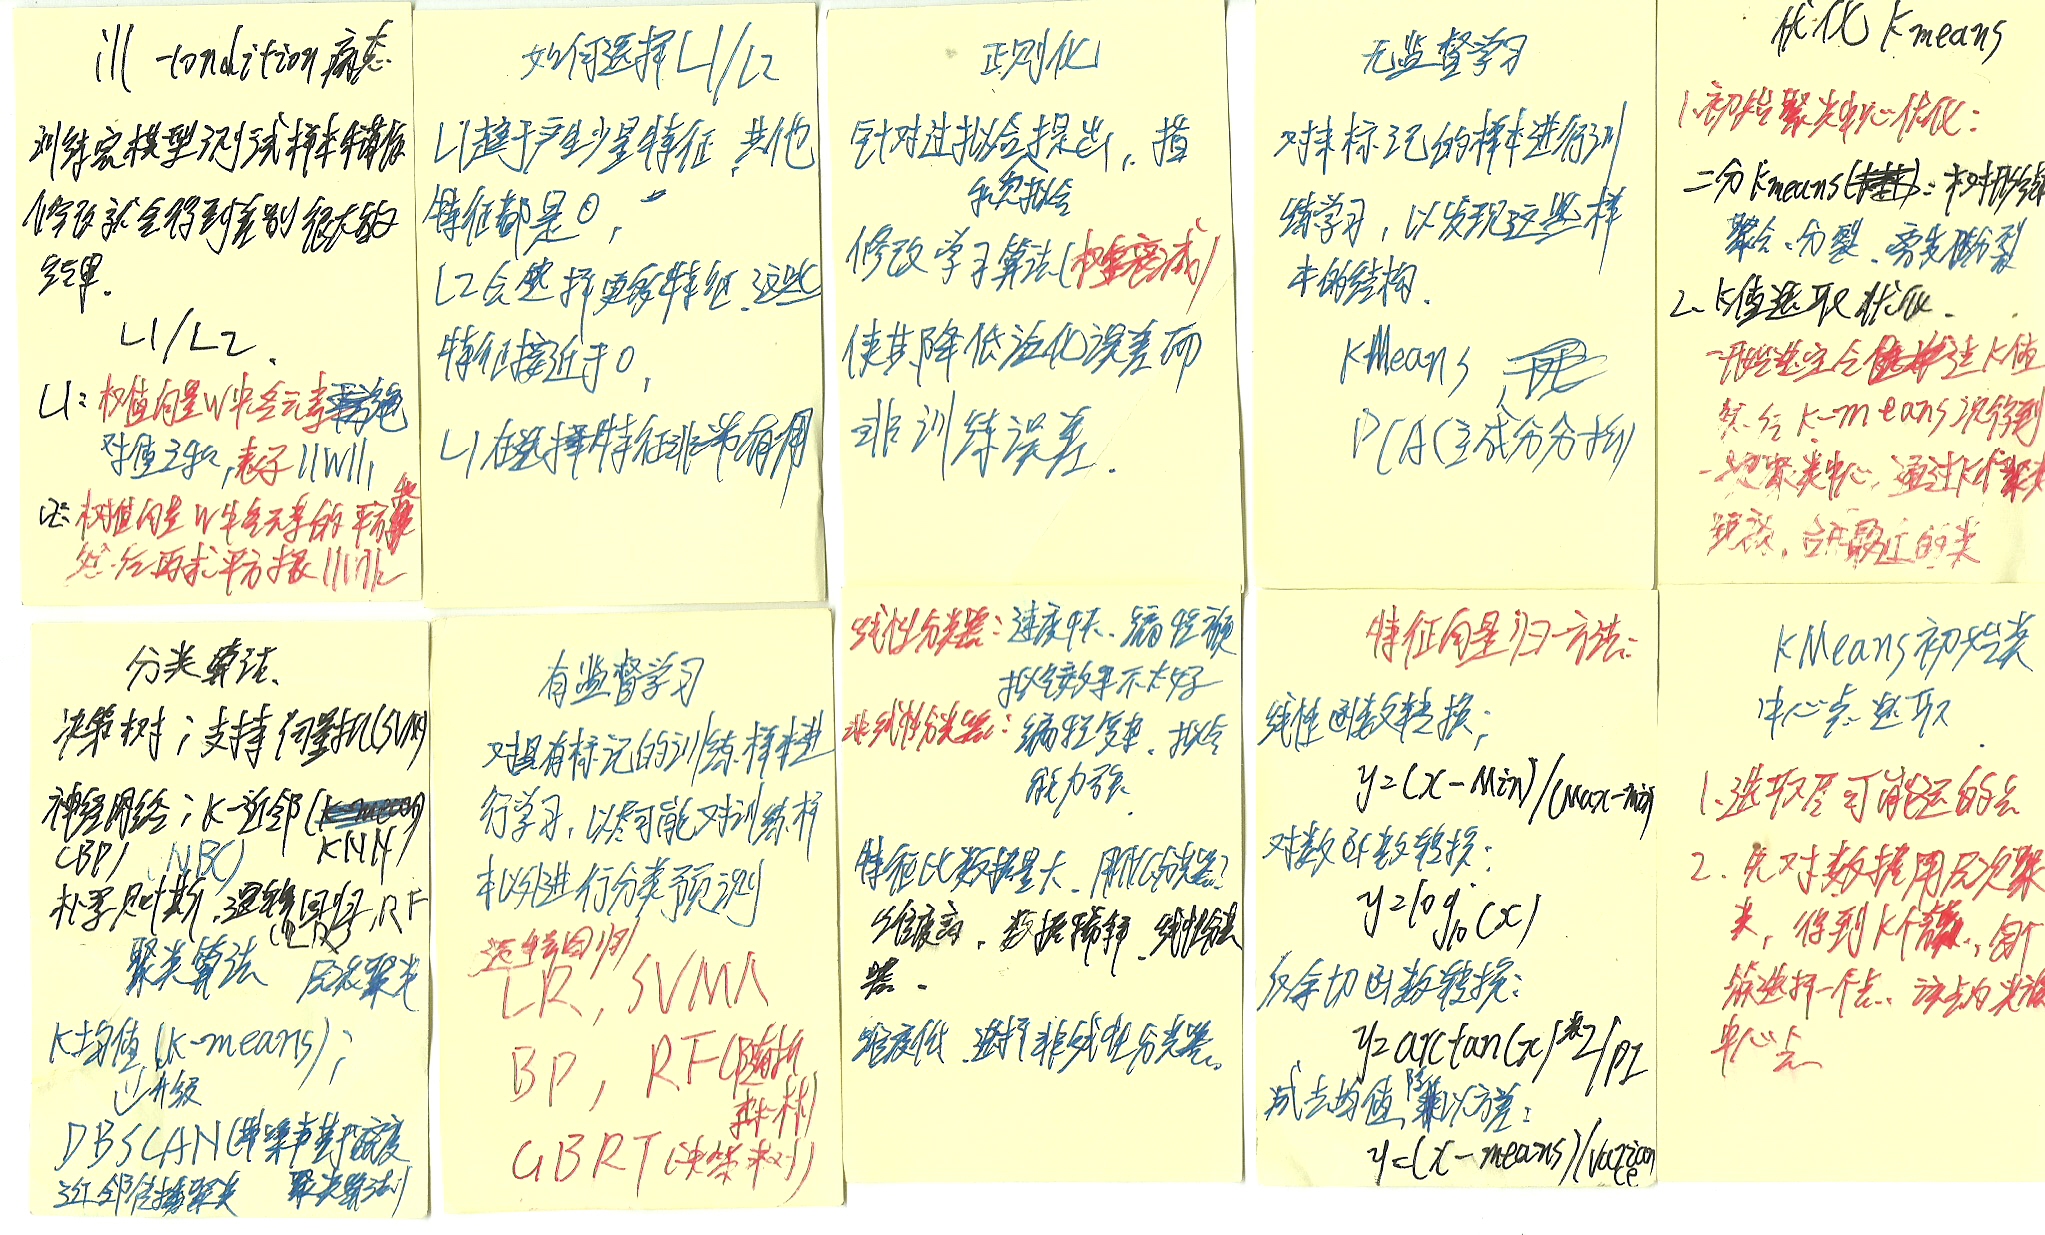 ill-condition 病态
训练完模型测试样本稍作
修改就会得到差别很大的
结果.
L1/L2.
L1: 权值向量W中各元素绝
对值之和, 表示||W||1
L2: 权值向量W中各元素的平方和
然后再求平方根||W||2
如何选择L1/L2
L1趋于产生少量特征, 其他
特征都是0,
L2会选择更多特征, 这些
特征接近于0,
L1在选择特征非常有用
正则化
针对过拟合提出, 指
和欠拟合
修改学习算法(权重衰减)
使其降低泛化误差而
非训练误差.
无监督学习
对未标记的样本进行训
练学习, 以发现这些样
本的结构.
KMeans,
PCA(主成分分析)
优化 Kmeans
1.初始聚类中心优化:
二分Kmeans
聚合、分裂、分裂
2. K值选取优化.
一开始选定合适K值
然后 K-means 得到
一次聚类中心, 通过K个聚类
合并最近的类
分类算法.
决策树; 支持向量机(SVM)
神经网络; K-近邻(
(BP) (NBC) KNN)
朴素贝叶斯, 逻辑回归, RF
(LR)
聚类算法 层次聚类
K均值(K-means);
升级
DBSCAN(带噪声基于密度
近邻传播聚类 聚类算法)
有监督学习
对具有标记的训练样本进
行学习, 以尽可能对训练样
本以外进行分类预测
逻辑回归
LR, SVM
BP, RF(随机
森林)
GBRT(决策树)
线性分类器: 速度快、编程简
拟合效果不太好
非线性分类器: 编程复杂、拟合
能力强.
特征比数据量大、用什么分类器?
维度高, 数据稀疏, 线性分类
器.
维度低、选择非线性分类器.
特征向量归一方法:
线性函数转换:
y=(x-Min)/(Max-min)
对数函数转换:
y=log10(x)
反余切函数转换:
y=arctan(x)*2/PI
减去均值, 除以方差:
y=(x-means)/(variance
KMeans初始类
中心点选取
1. 选取尽可能远的点
2. 先对数据用层次聚
类, 得到K个簇, 每个
簇选择一个点, 该点为类簇
中心点